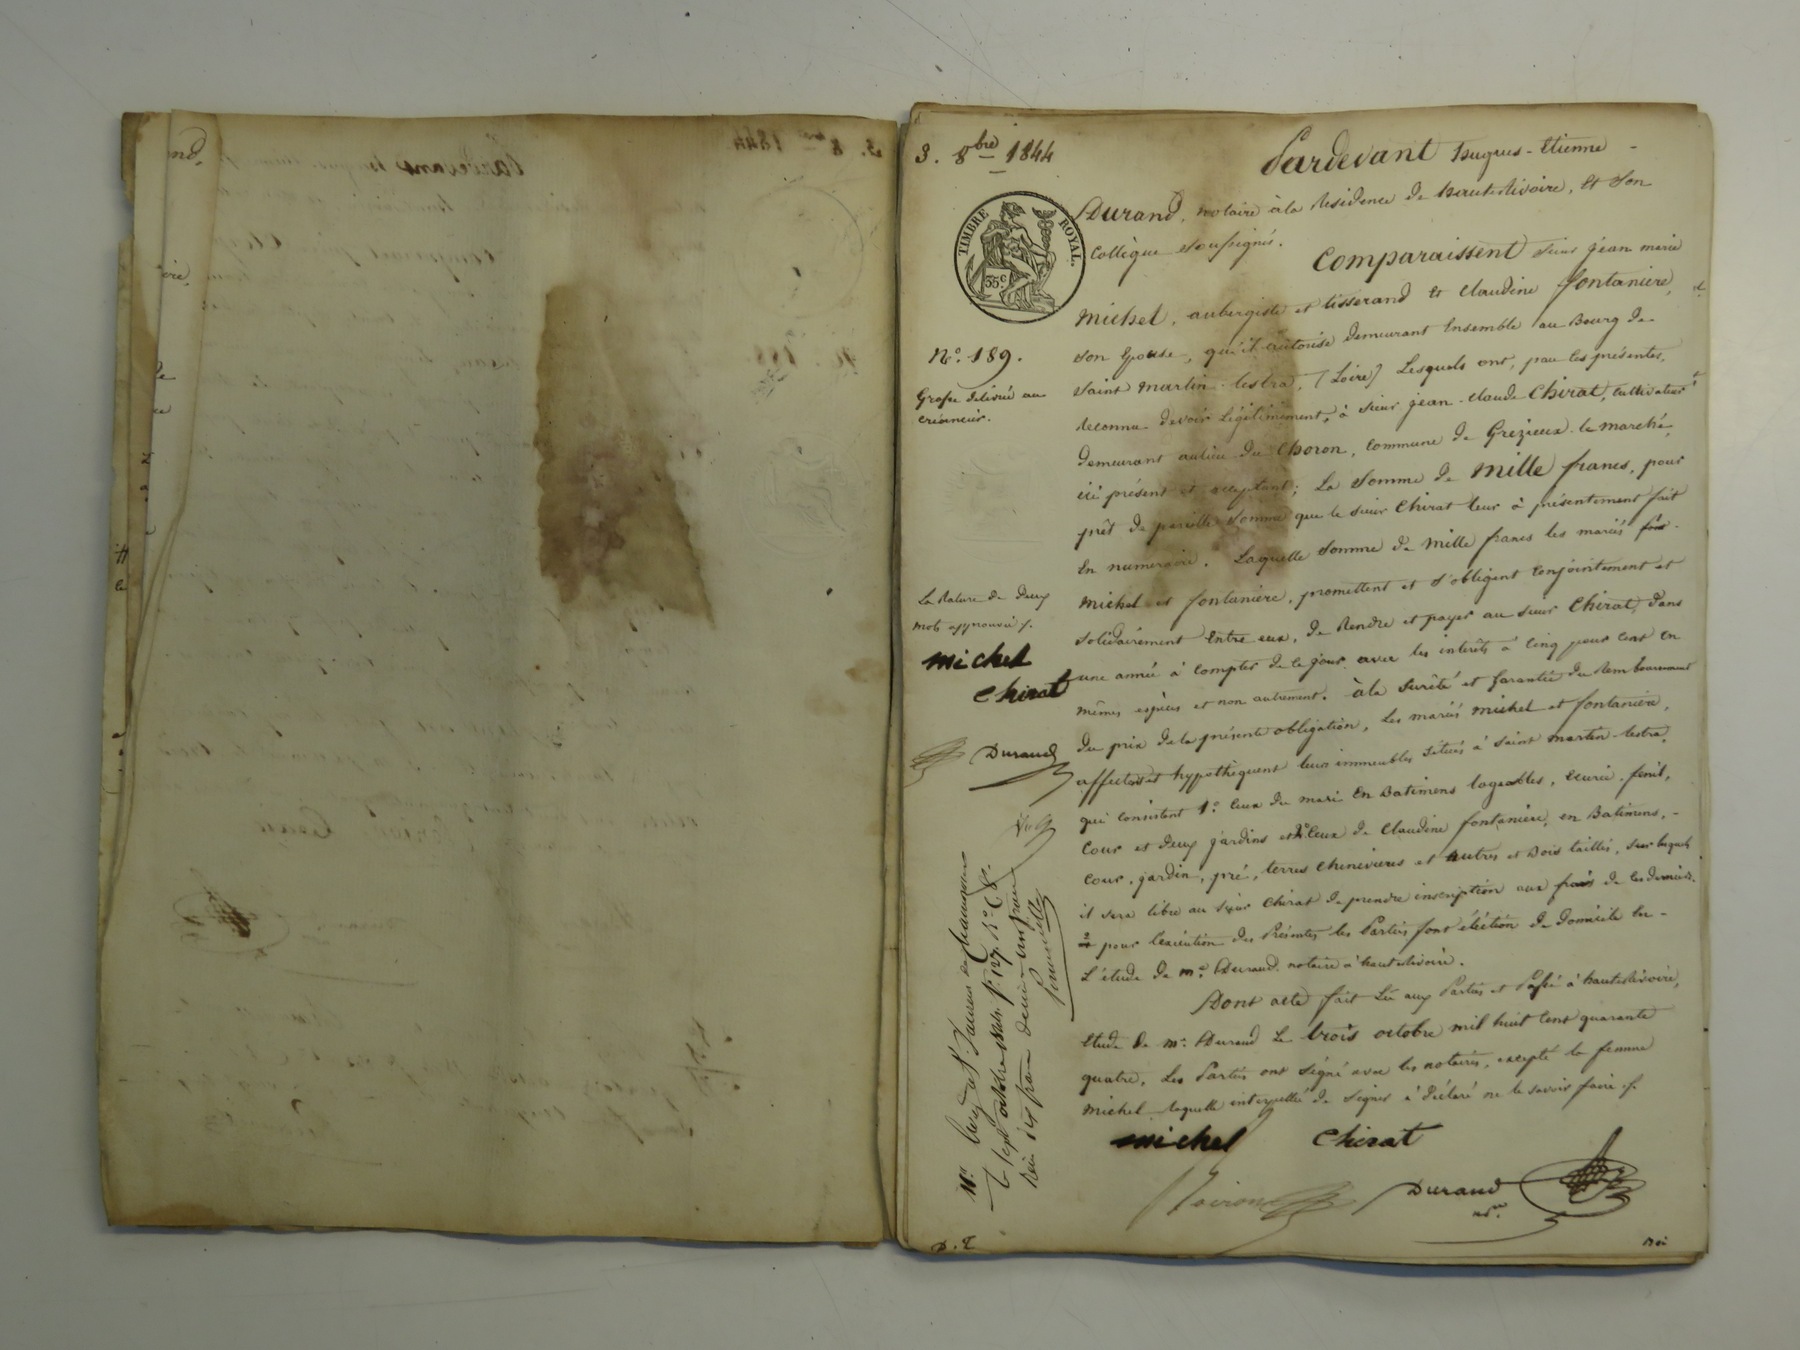 3. 8bre 1844
Pardevant hugues-Etienne -
Durand, notaire à la Residence de hauterivoire, Et Son
Collègue soussignés.
Comparaissent sieur jean marie
michel, aubergiste et tisserand et Claudine fontanière,
son Epouse, qu'il autorise demeurant Ensemble au Bourg de
Saint martin-lestra, (Loire) Lesquels ont, par les présentes,
reconnu devoir légitimement, à sieur jean-claude Chirat, cultivateur
demeurant au lieu du Choron, commune de Grezieux-le-marché,
ici présent et acceptant; La Somme de mille francs, pour
prêt de pareille somme que le sieur Chirat leur à présentement fait
En numeraire. Laquelle somme de mille francs les mariés
michel et fontanière, promettent et s'obligent conjointement et
solidairement Entre eux, de Rendre et payer au sieur Chirat, dans
une année à compter de ce jour avec les intérêts à cinq pour cent en
mêmes espèces et non autrement. à la surêté et garantie du Remboursement
du prix de la présente obligation, Les mariés michel et fontanière,
affectent et hypothèquent leurs immeubles situés à Saint martin-lestra,
qui consistent 1º. Ceux du mari En Batimens logeables, écurie, fenil,
Cour et deux jardins et 2º. Ceux de Claudine fontanière, en Batimens, -
Cour, jardin, pré, terres chenevieres et autres et Bois taillis, sur lesquels
il sera libre au sieur Chirat de prendre inscription aux frais de ces derniers.
pour l'exécution des Présentes les Parties font élection de domicile En -
L'étude de me. Durand notaire à hauterivoire.
Dont acte fait Lu aux Parties et Passé à hauterivoire,
Etude de me. Durand Le trois octobre mil huit cent quarante
quatre, Les Parties ont signé avec les notaires, excepté la femme
michel laquelle interpellée de signer à déclaré ne le savoir faire
michel Chirat
Durand
nre.
TIMBRE ROYAL.
35c
No. 189.
Grosse délivrée au
créancier.
La Rature de deux
mots approuvée
michel
Chirat
Durand